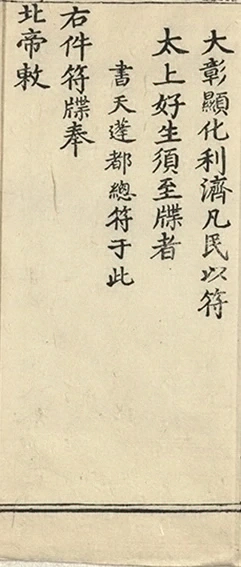 大彰顯化利濟凡民以符
太上好生須至牒者
書天蓬都總符于此
右件符牒奉
北帝敕